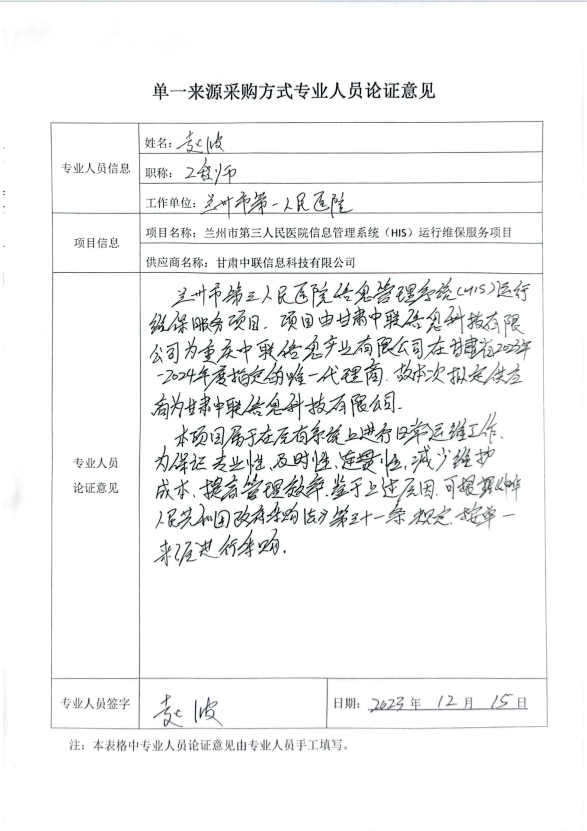 单一来源采购方式专业人员论证意见
专业人员信息
姓名：赵波
职称：工程师
工作单位：兰州市第一人民医院
项目信息
项目名称：兰州市第三人民医院信息管理系统（HIS）运行维保服务项目
供应商名称：甘肃中联信息科技有限公司
专业人员
论证意见
兰州市第三人民医院信息管理系统(HIS)运行
维保服务项目，项目由甘肃中联信息科技有限
公司为重庆中联信息产业有限公司在甘肃省2023年
-2024年度指定的唯一代理商，故本次拟定供应
商为甘肃中联信息科技有限公司.
本项目属于在原有系统上进行日常运维工作，
为保证专业性，及时性，连贯性，减少维护
成本，提高管理效率，鉴于上述原因，可根据《中华
人民共和国政府采购法》第三十一条规定，按单一
来源进行采购.
专业人员签字
赵波
日期：2023年12月15日
注：本表格中专业人员论证意见由专业人员手工填写。